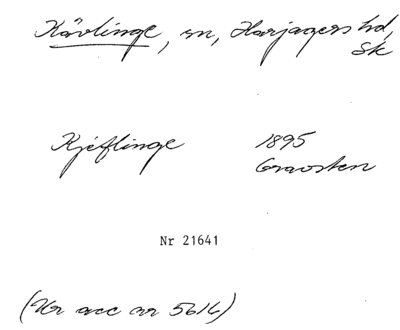 Kävlinge, sn, Harjagers hd,
Sk
Kjeflinge 1895
Gravsten
Nr 21641
(Ur acc nr 5614)